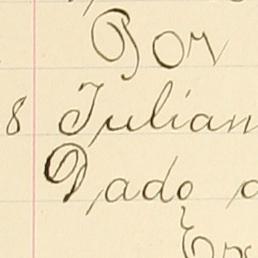 Por
8 Julian
Dado